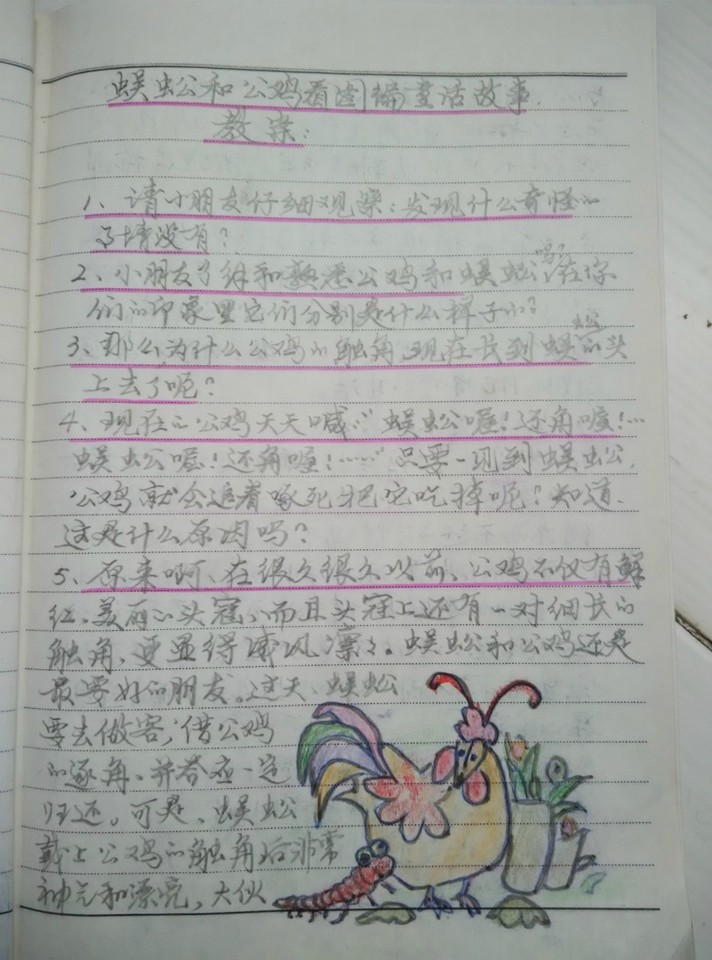 蜈蚣和公鸡看图编童话故事
教案:
1、请小朋友仔细观察:发现什么奇怪的
事情没有?
2、小朋友了解和熟悉公鸡和蜈蚣吗?在你
们的印象里它们分别是什么样子的?
3、那么为什么公鸡的触角现在长到蜈蚣的头
上去了呢?
4、现在的公鸡天天喊:“蜈蚣喔!还角喔!…
蜈蚣喔!还角喔!……”只要一见到蜈蚣,
公鸡就会追着啄死把它吃掉呢?知道、
这是什么原因吗?
5、原来啊、在很久很久以前、公鸡不仅有鲜
红、美丽的头冠、而且头冠上还有一对细长的
触角、更显得威风凛凛。蜈蚣和公鸡还是
最要好的朋友。这天、蜈蚣
要去做客,借公鸡
的逐角、并答应一定
归还。可是、蜈蚣
戴上公鸡的触角后非常
神气和漂亮,大伙